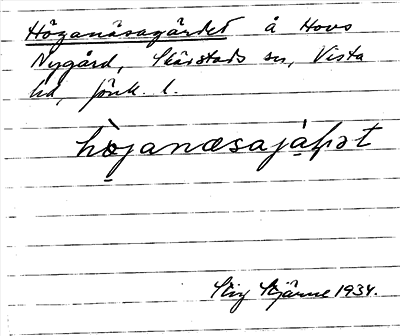 Höganäsagärdet å Hovs
Nygård, Skärstads sn, Vista
hd, Jönk. l.
hòjanæsajàṛət
Stig Stjärne 1934.